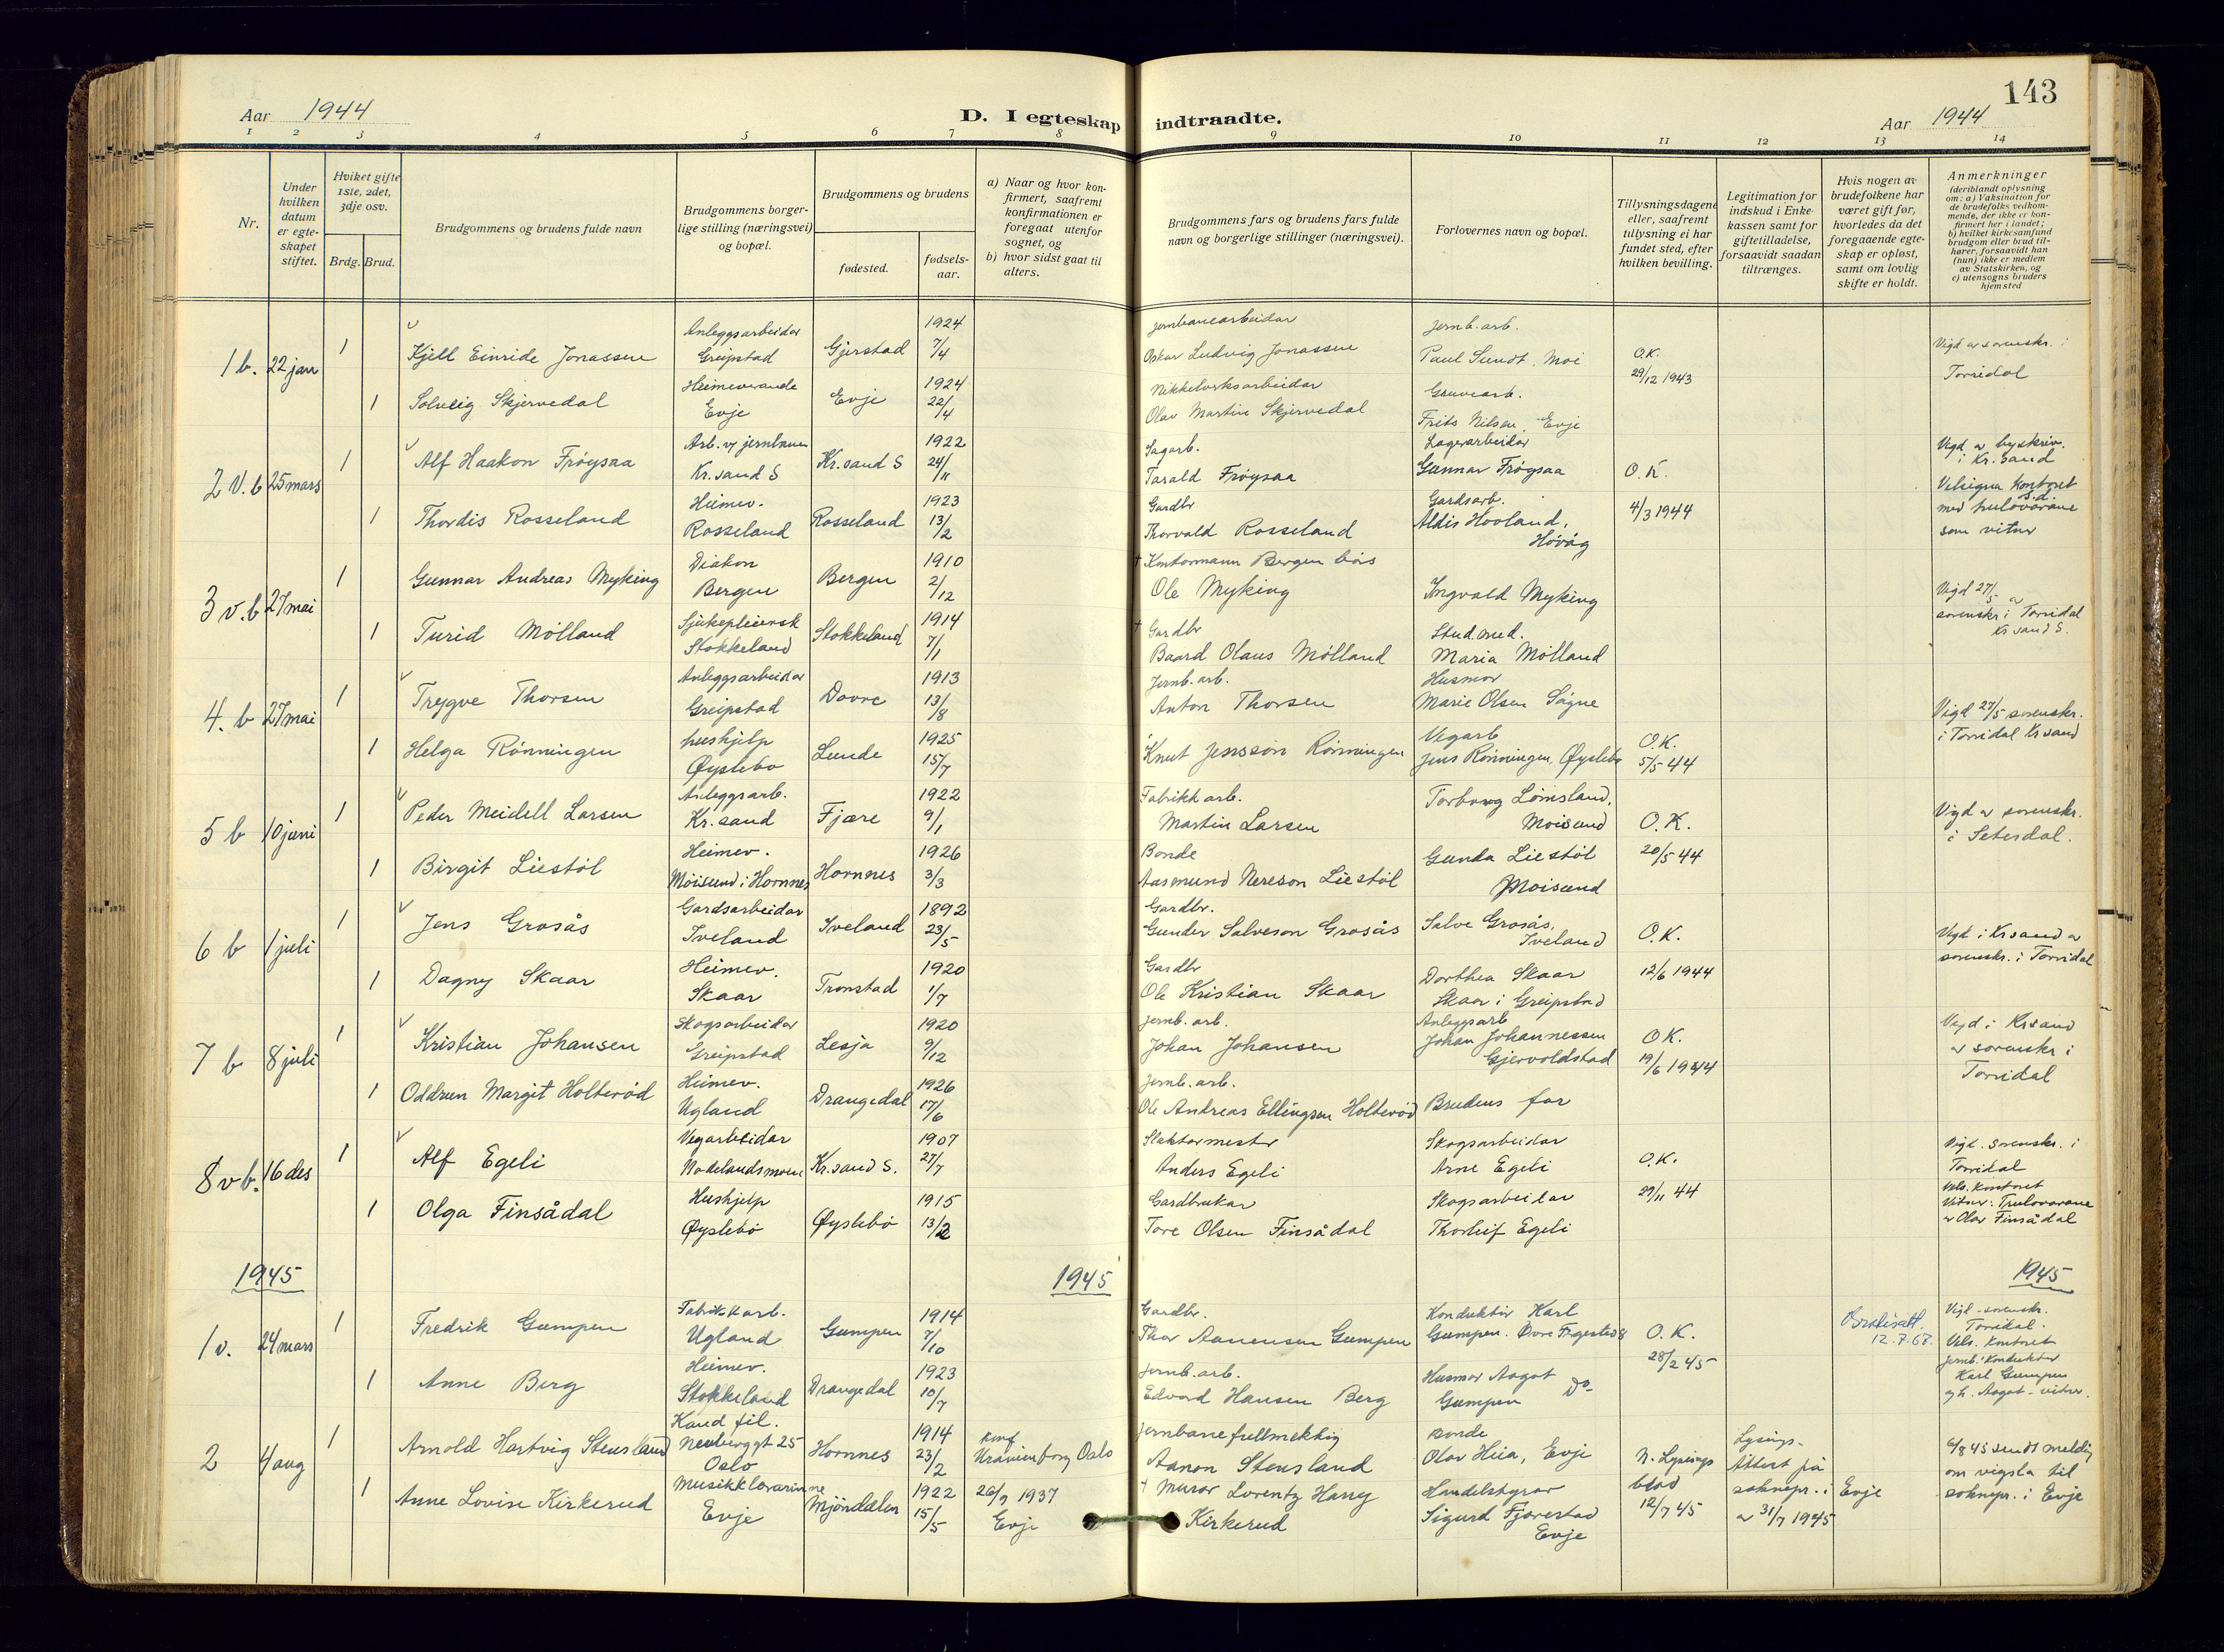 143
Aar 1944
D. I egteskap indtraadte.
Aar 1944
1 2 3 4 5 6 7 8 9 10 11 12 13 14
Nr.
Under hvilken datum er egteskapet stiftet.
Hviket gifte 1ste, 2det, 3dje osv.
Brdg. Brud.
Brudgommens og brudens fulde navn
Brudgommens borgerlige stilling (næringsvei) og bopæl.
Brudgommens og brudens
fødested.
fødselsaar.
a) Naar og hvor konfirmert, saafremt konfirmationen er foregaat utenfor sognet, og
b) hvor sidst gaat til alters.
Brudgommens fars og brudens fars fulde navn og borgerlige stillinger (næringsvei).
Forlovernes navn og bopæl.
Tillysningsdagene eller, saafremt tillysning ei har fundet sted, efter hvilken bevilling.
Legitimation for indskud i Enkekassen samt for giftetilladelse, forsaavidt saadan tiltrænges.
Hvis nogen av brudefolkene har været gift før, hvorledes da det foregaaende egteskap er opløst, samt om lovlig skifte er holdt.
Anmerkninger
(deriblandt oplysning om: a) Vaksination for de brudefolks vedkommende, der ikke er konfirmert her i landet; b) hvilket kirkesamfund brudgom eller brud tilhører, forsaavidt han (hun) ikke er medlem av Statskirken, og c) utensogns bruders hjemsted
1 b. 22 jan 1 Kjell Einride Jonassen Anleggsarbeidar Greipstad Gjerstad 1924 7/4 Jernbanearbeidar Oskar Ludvig Jonassen Jernb. arb. Paul Sundt, Moi O.K. 29/12 1943 Vigd av sorenskr. i Torridal
1 Solveig Skjervedal Heimeverande Evje Evje 1924 22/4 Nikkelverksarbeidar Olav Martin Skjervedal Gruvearb. Frits Nilsen, Evje
2 v. b 25 mars 1 Alf Haakon Frøysaa Arb. v/ jernbanen Kr.sand S Kr.sand S 1922 24/11 Sagarb. Tarald Frøysaa Lagerarbeidar Gunnar Frøysaa O.K. Vigd av byskriv. i Kr.sand
1 Thordis Rosseland Heimev. Rosseland Rosseland 1923 13/2 Gardbr Thorvald Rosseland Gardsarb. Aldis Hooland, Høvåg 4/3 1944 Velsigna kontoret s.d. med forlovarane som vitner
3 v. b 27 mai 1 Gunnar Andreas Myking Diakon Bergen Bergen 1910 2/12 † Kontormann Bergen Ole Myking Ingvald Myking Vigd 27/5 av sorenskr. i Torridal Kr sand S.
1 Turid Mölland Sjukepleiersk Stokkeland Stokkeland 1914 7/1 † Gardbr Baard Olaus Mölland Stud. med. Maria Mölland
4. b 27 mai 1 Trygve Thorsen Anleggsarbeidar Greipstad Dovre 1913 13/8 Jernb. arb. Anton Thorsen Husmor Marie Olsen Søgne Vigd 27/5 sorenskr. i Torridal Kr sand
1 Helga Rönningen hushjelp Øyslebø Lunde 1925 15/7 Knut Jensson Rönningen Vegarb Jens Rönningen, Øyslebø O.K. 5/5 44
5 b 10 juni 1 Peder Meidell Larsen Anleggsarb. Kr. sand Fjære 1922 9/1 Fabrikk arb. Martin Larsen Torborg Lömsland, Moisund O.K. Vigd av sorenskr. i Setesdal.
1 Birgit Liestöl Heimev. Moisund i Hornnes Hornnes 1926 3/3 Bonde Aasmund Nereson Liestöl Gunda Liestöl Moisund 20/5 44
6 b 1 juli 1 Jens Grosås Gardsarbeidar Iveland Iveland 1892 23/5 Gardbr. Gunder Salveson Grosås Salve Grosås, Iveland O.K. Vigd i Kr sand av sorenskr. i Torridal
1 Dagny Skaar Heimev. Skaar Tronstad 1920 1/7 Gardbr Ole Kristian Skaar Dorthea Skaar Skaar i Greipstad 12/6 1944
7 b 8 juli 1 Kristian Johansen Skogsarbeidar Greipstad Lesja 1920 9/12 Jernb. arb. Johan Johansen Anleggsarb Johan Johannessen Gjervoldstad O.K. 19/6 1944 Vigd i Kr sand av sorenskr i Torridal
1 Oddrun Margit Holteröd Heimev. Ugland Drangedal 1926 17/6 Jernb. arb. Ole Andreas Ellingsen Holteröd Brudens far
8 v b. 16 des 1 Alf Egeli Vegarbeidar Nodelandsmoen Kr.sand S. 1907 27/7 Slaktarmester Anders Egeli Skogsarbeidar Arne Egeli O.K. Vigd. sorenskr. i Torridal
1 Olga Finsådal Hushjelp Øyslebö Øyslebö 1915 13/2 Gardbrukar Tore Olsen Finsådal Skogsarbeidar Thorleif Egeli 29/11 44 Vels. kontoret Vitner: Trulovarane av Olav Finsådal
1945 1945 1945
1 v. 24 mars 1 Fredrik Gumpen Fabrikkarb. Ugland Gumpen 1914 7/10 Gardbr. Thor Aanensen Gumpen Konduktör Karl Gumpen. Øvre O.K. 12.7.67. Vigd - sorenskr. Torridal. Vels. kontoret
1 Anne Berg Heimev. Stokkeland Drangedal 1923 10/7 Jernb. arb. Edvard Hansen Berg Husmor Aagot Gumpen Do 28/2 45 Jernb. konduktör Karl Gumpen og h. Aagot - vitner.
2 4 aug 1 Arnold Hartvig Stensland Kand fil. Neuberggt 25 Oslo Hornnes 1914 23/2 Konf Uranienborg Oslo Jernbanefullmektig Aanon Stensland Bonde Olav Heia, Evje N. Lysingsblad Lysings-Attest på soknepr. i Evje 6/8 45 sendt melding om vigsla til soknepr. i Evje
1 Anne Lovise Kirkerud Musikklærarinne Evje Mjöndalen 1922 15/5 26/9 1937 Evje † Murar Lorentz Harry Kirkerud Handelstyrar Sigurd Fjærestad Evje 12/7 45 av 31/7 1945